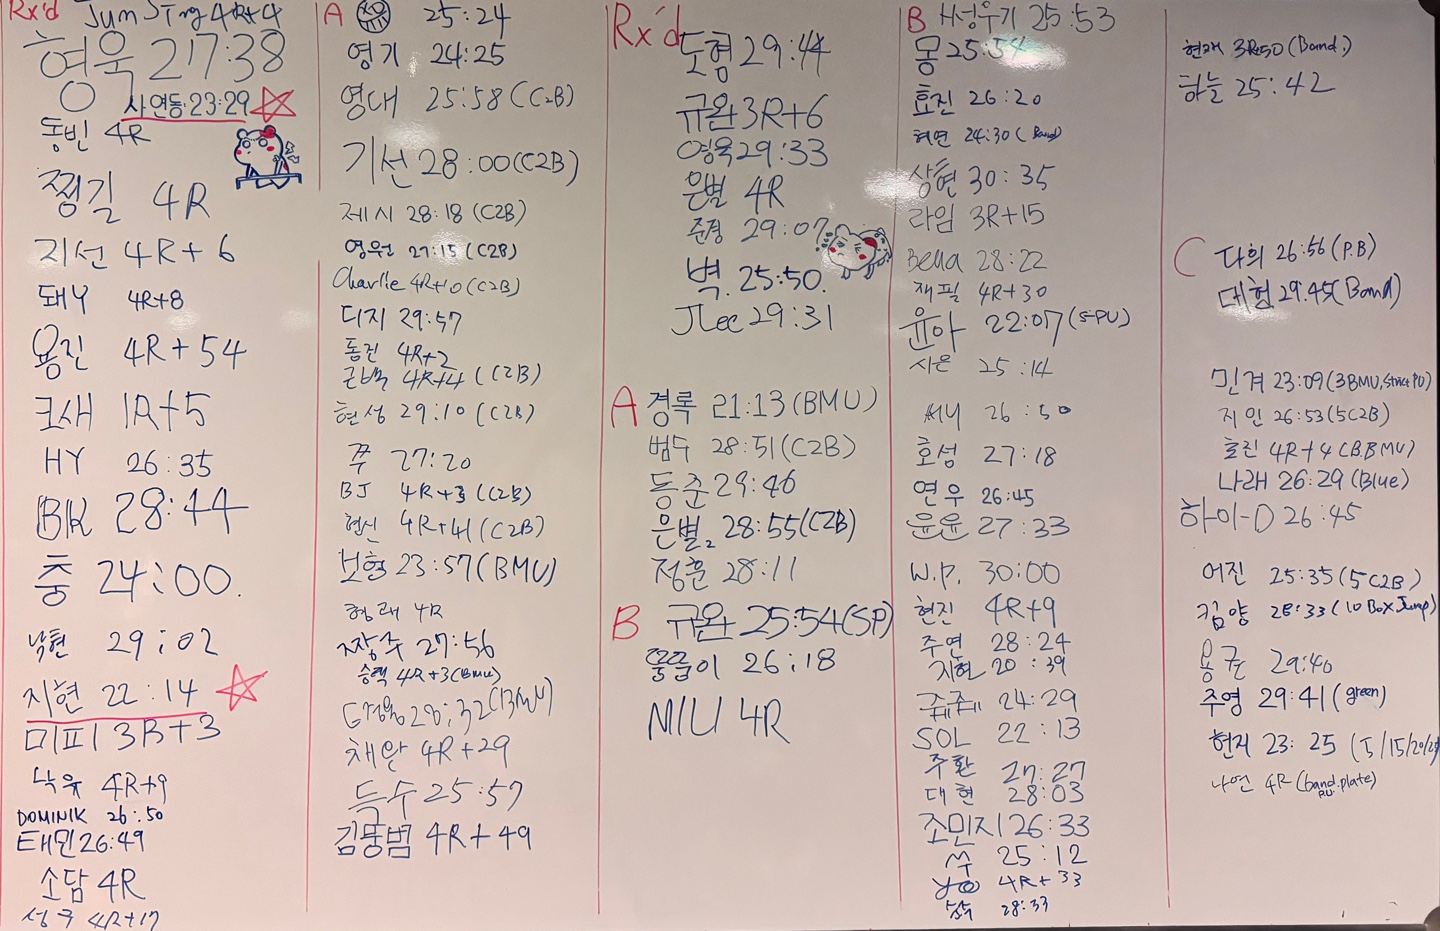 Rx'd Jun Sung 4R+4
형욱 27:38
사연동 23:29
동빈 4R
찡길 4R
지선 4R+6
돼Y 4R+8
용진 4R+54
크새 1R+5
HY 26:35
BK 28:44
충 24:00.
낙현 29:02
지현 22:14
미피 3R+3
낙유 4R+9
DOMINIK 26:50
태민 26:49
소담 4R
성구 4R+17
A 25:24
영기 24:25
영대 25:58(C2B)
기선 28:00(C2B)
제시 28:18(C2B)
영원 27:15(C2B)
Charlie 4R+0(C2B)
디지 29:57
동건 4R+2
근백 4R+4(C2B)
현성 29:10(C2B)
쭈 27:20
BJ 4R+3(C2B)
형신 4R+41(C2B)
보형 23:57(BMU)
형래 4R
짱수 27:56
승택 4R+3(BMU)
28:32(BMU)
채완 4R+29
득수 25:57
김뭉범 4R+49
Rx'd
도형 29:44
규완 3R+6
영욱 29:33
은별 4R
준경 29:07
벽. 25:50.
JLee 29:31
A 경록 21:13(BMU)
범수 28:51(C2B)
동준 29:46
은별2 28:55(C2B)
정훈 28:11
B 규완 25:54(SP)
뚤뚤이 26:18
MIU 4R
B H성우기 25:53
몽 25:54
효진 26:20
혀연 24:30(Band)
상현 30:35
라임 3R+15
Bella 28:22
재필 4R+30
윤아 22:07(S-PU)
시은 25:14
써니 26:50
호성 27:18
연우 26:45
윤윤 27:33
W.P. 30:00
현진 4R+9
주연 28:24
지현 20:39
쥬쥬 24:29
SOL 22:13
주환 27:27
대현 28:03
조민지 26:33
25:12
4R+33
28:33
현재 3R+50(Band.)
하늘 25:42
C 다희 26:56(P.B)
대험 29:45(Band)
민겨 23:09(3BMU, Strict PU)
지인 26:53(5C2B)
효진 4R+4(B.BMU)
나래 26:29(Blue)
하이-D 26:45
어진 25:35(5C2B)
킴양 28:33(10 Box Jump)
용준 29:40
주영 29:41(green)
현지 23:25(5/15/20/25)
나연 4R(band PU. plate)